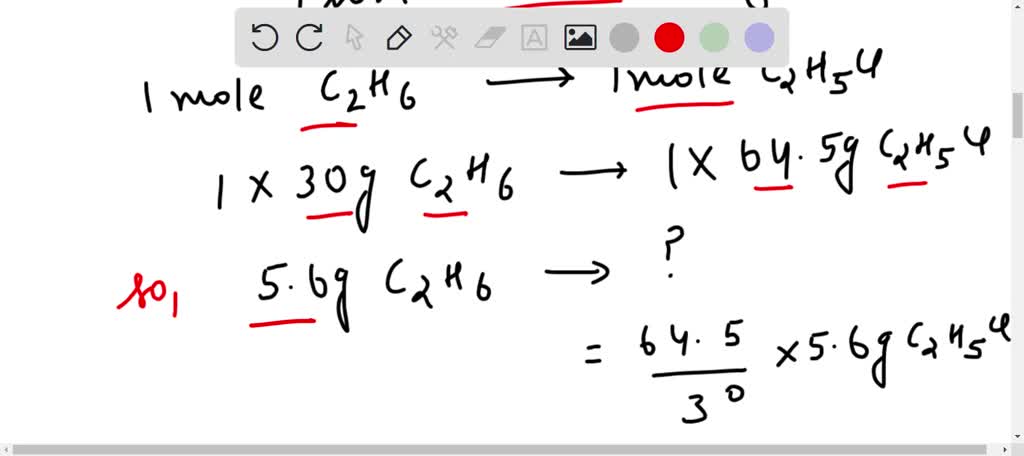 1 mole C₂H₆ → 1 mole C₂H₅Cl
1 × 30g C₂H₆ → 1 × 64.5g C₂H₅Cl
so, 5.6g C₂H₆ → ?
= 64.5/30 × 5.6g C₂H₅Cl